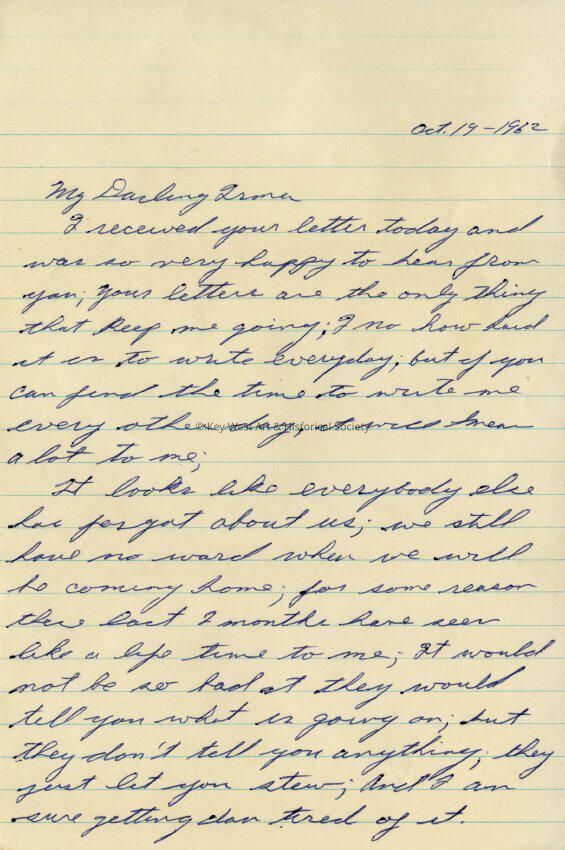 Oct. 19-1962
My Darling Irma
I received your letter today and
was so very happy to hear from
you; your letters are the only thing
that keep me going; I no how hard
it is to write everyday; but if you
can find the time to write me
every other day, it will mean
a lot to me;
© Key West Art & Historical Society
It looks like everybody else
has forgot about us; we still
have no word when we will
be coming home; for some reason
these last 2 months have seen
like a life time to me; It would
not be so bad if they would
tell you what is going on; but
they don't tell you anything; they
just let you stew; And I am
sure getting dam tired of it.